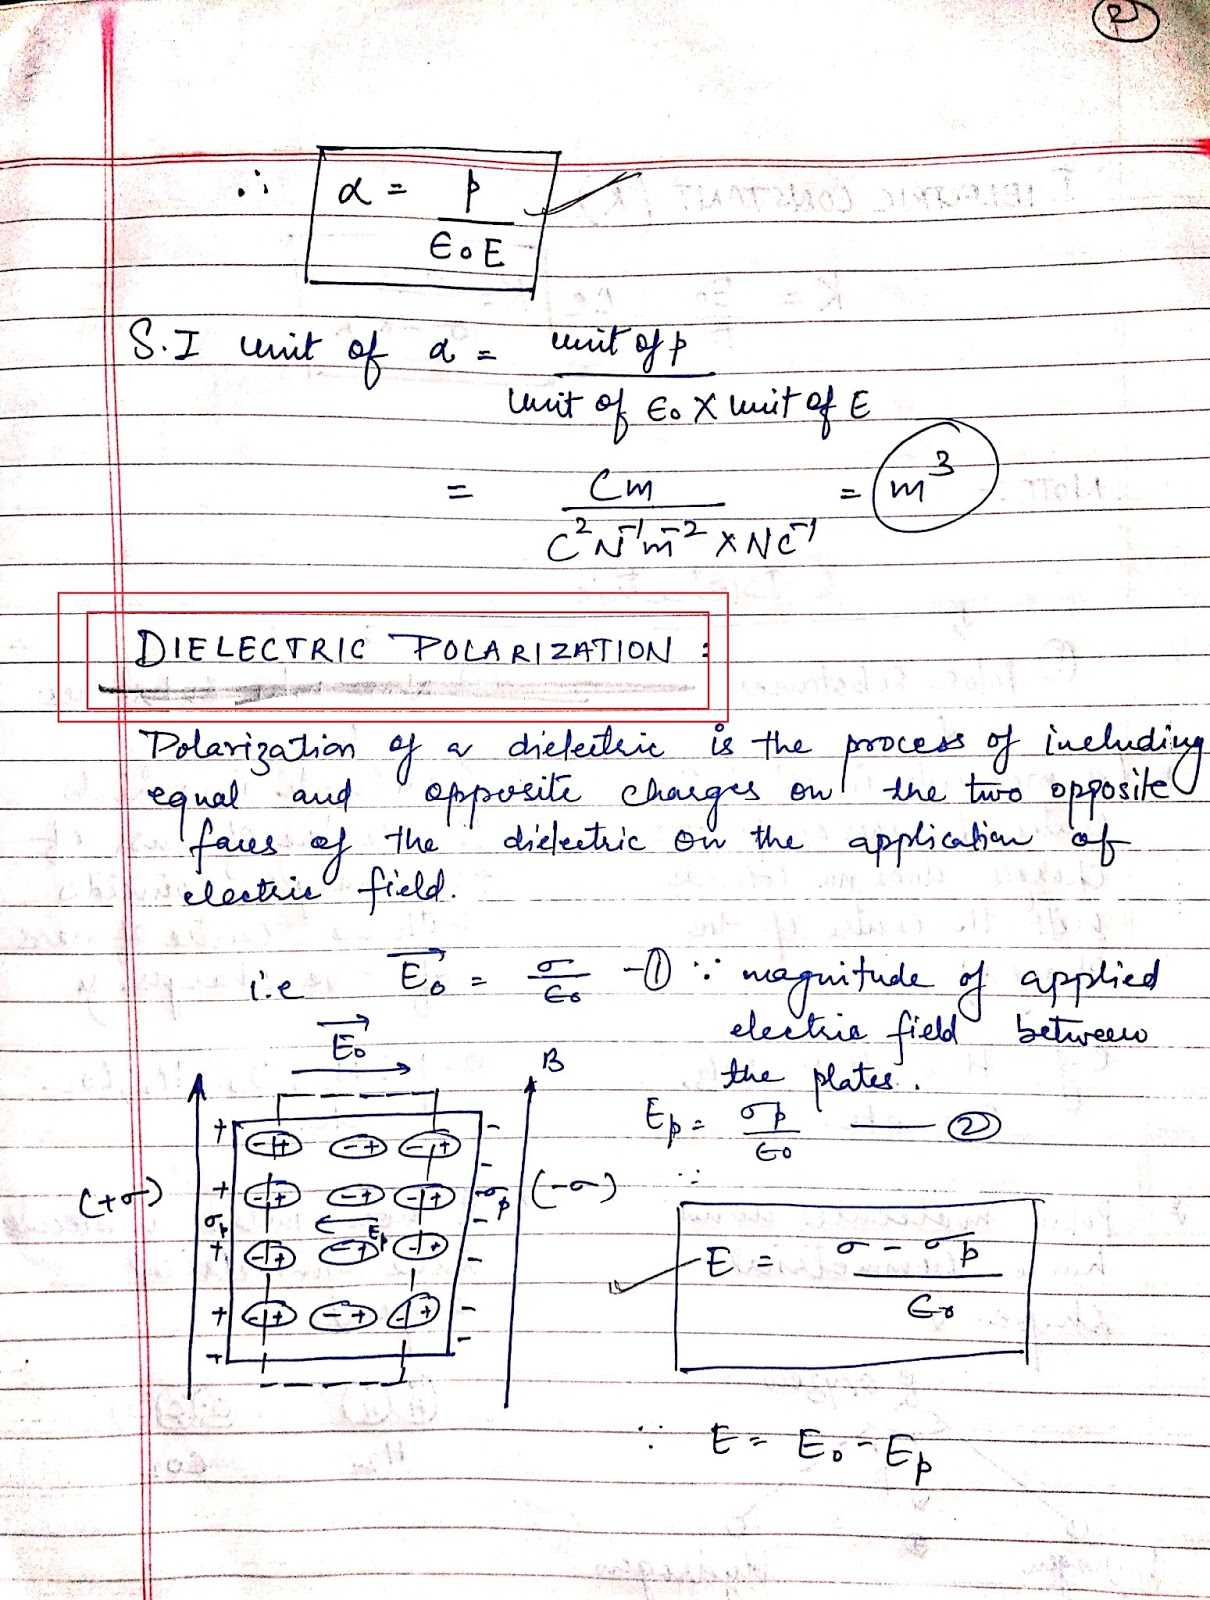 ∴ α = p / ϵ₀E
S.I unit of α = unit of p / unit of ϵ₀ × unit of E
= Cm / C²N⁻¹m⁻² × NC⁻¹ = m³
DIELECTRIC POLARIZATION :
Polarization of a dielectric is the process of including
equal and opposite charges on the two opposite
faces of the dielectric on the application of
electric field.
i.e E₀ = σ / ϵ₀ -① ∵ magnitude of applied
electric field between
the plates.
E₀
B
Ep = σp / ϵ₀ — ②
(+σ) σp Ep -σp (-σ)
∴
E = σ - σp / ϵ₀
∵ E = E₀ - Ep